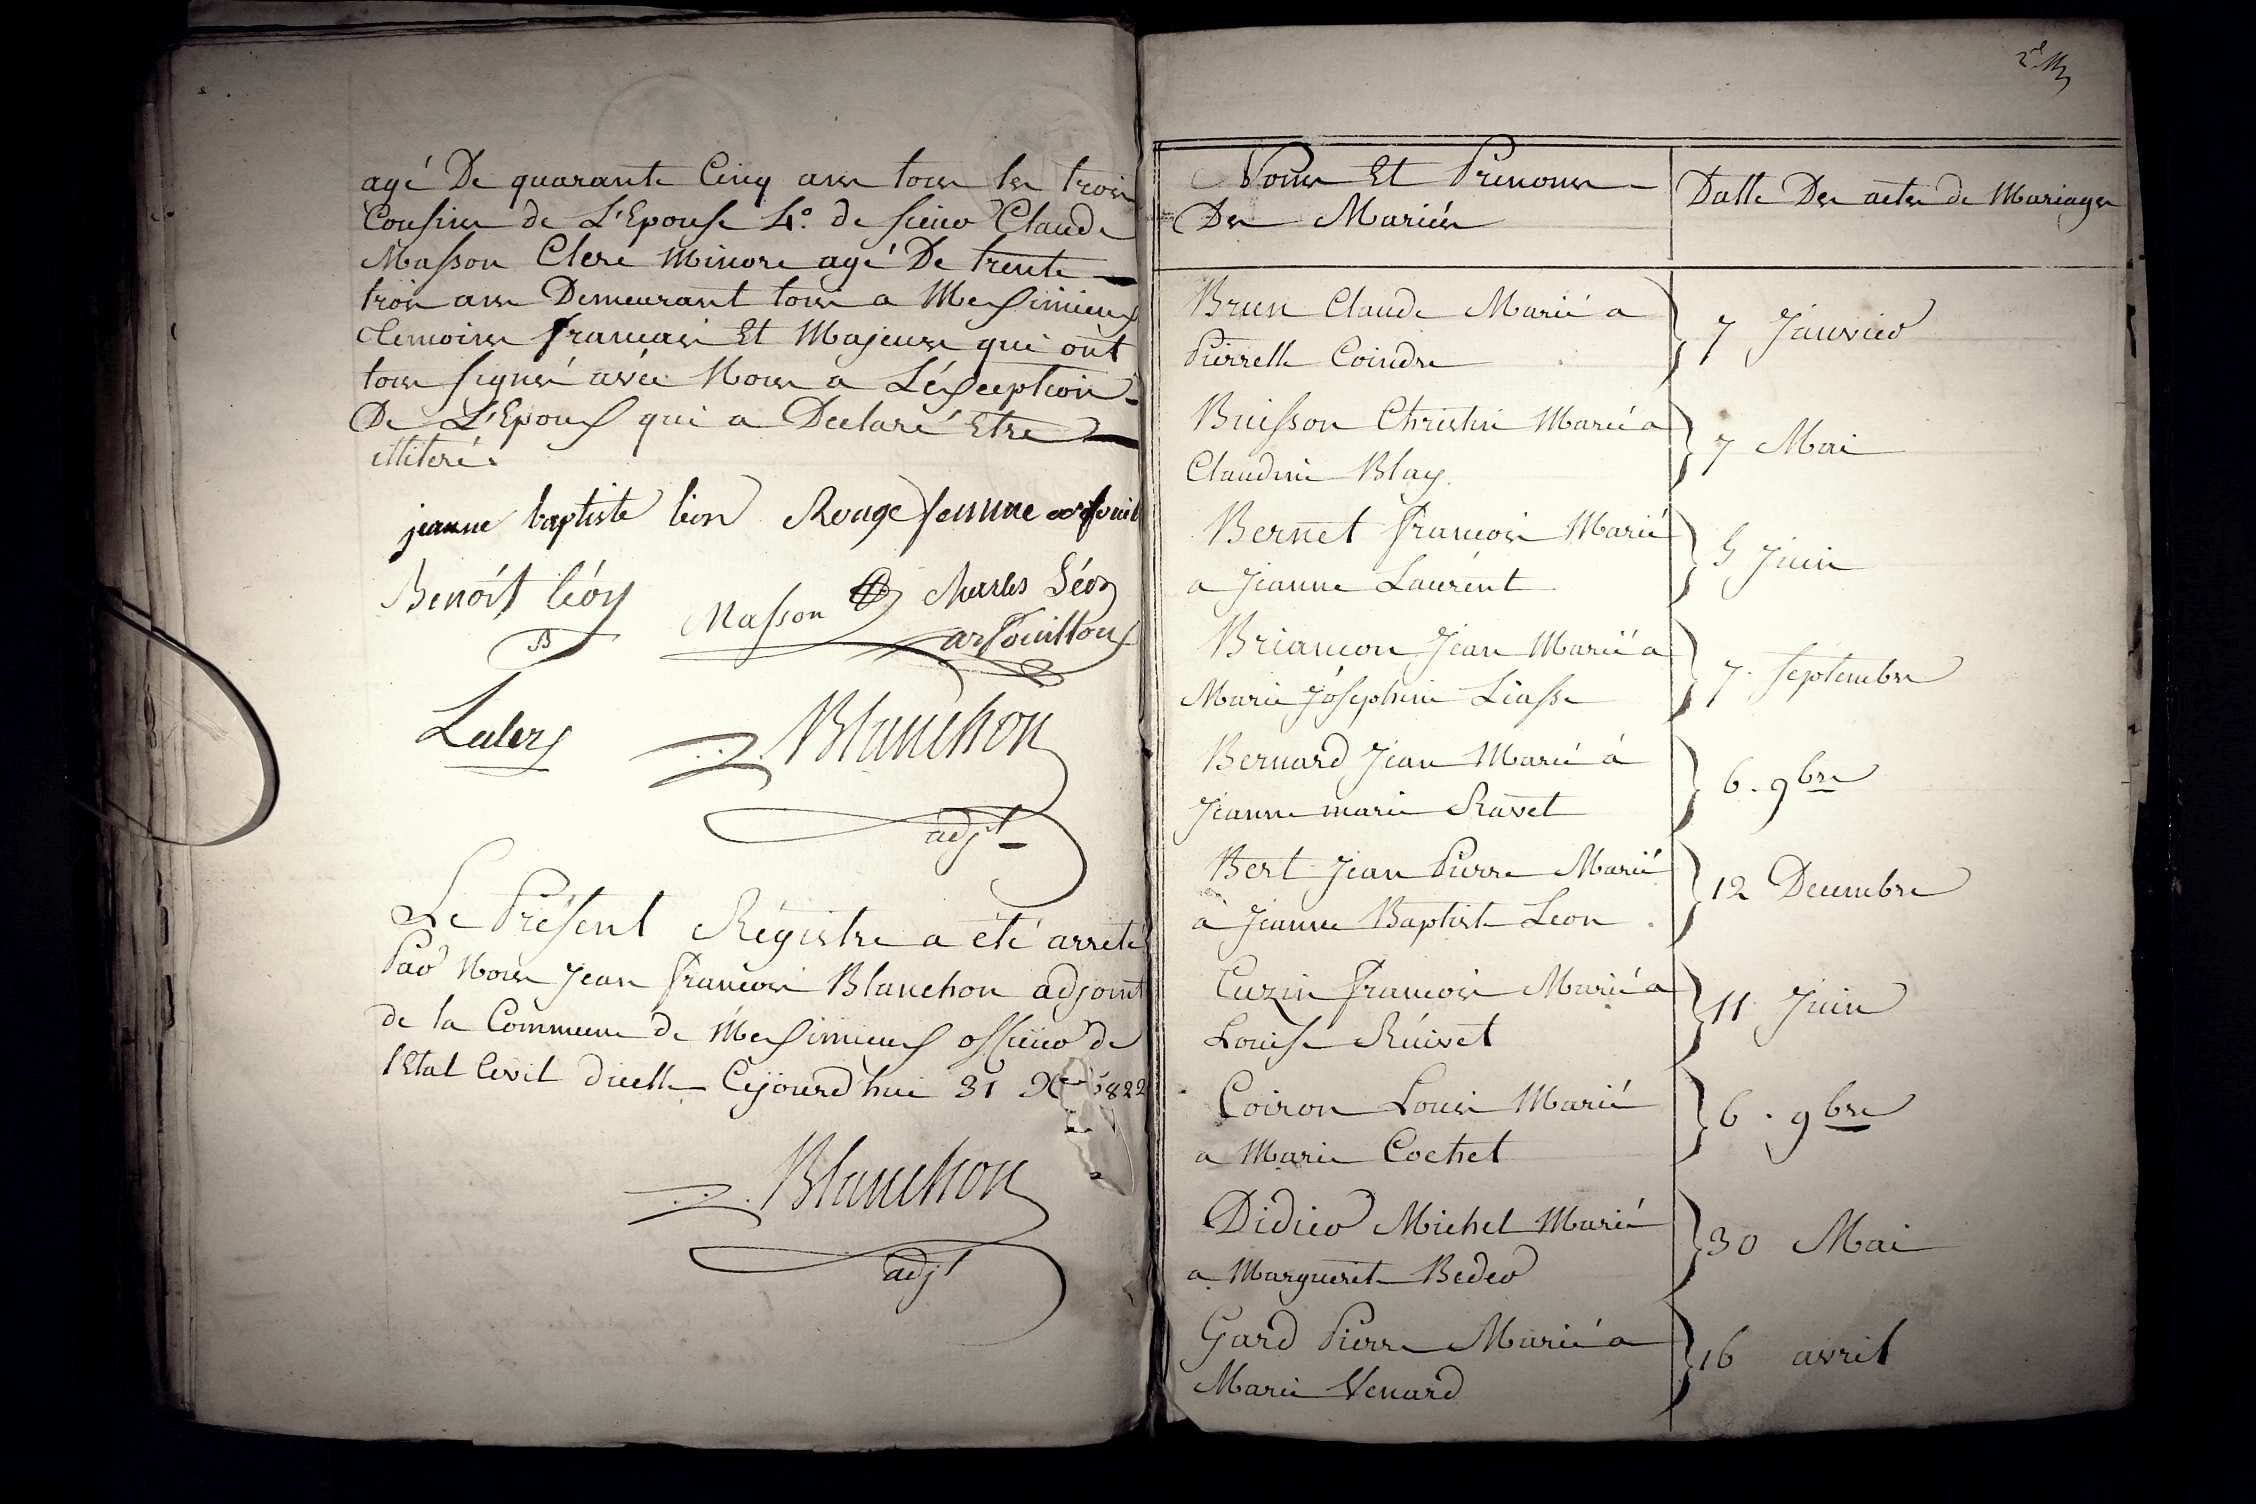 agé De quarante Cinq ans tous les trois
Cousins de L'Epouse 4.° de sieur Claude
Masson Clerc Minoré agé De trente
trois ans Demeurant tous a Meximieux
temoins francais Et Majeurs qui ont
tous signés avec Nous a L'éxception
De L'Epoux qui a Declaré Etre
illiteré.
jeanne baptiste léon Rouge femme
Benoit léon Masson Charles Léon
arfouilloux
Blanchon
adjt
Le Présent Régistre a été arreté
Par Nous Jean francois Blanchon adjoint
de la Commune de Meximieux officier de
l'Etat Civil d'icelle Cejourd'hui 31 1822
Blanchon
adjt
Noms Et Prenoms
Des Mariés
Datte Des actes de Mariages
Brun Claude Marié a
Pierrette Coindre
7 Janvier
Buisson Christin Marié a
Claudine Blay
7 Mai
Bernet francois Marié
a Jeanne Laurent
5 Juin
Briancon Jean Marié a
Marie Joséphine Liasse
7. septembre
Bernard Jean Marié á
Jeanne marie Ravet
6. 9bre
Bert Jean Pierre Marié
a Jeanne Baptiste Leon
12 Decembre
Cuzin francois Marié a
Louise Ruivet
11 Juin
Coiron Louis Marié
a Marie Cochet
6. 9bre
Didier Michel Marié
a Marguerite Beder
30 Mai
Gard Pierre Marié a
Marie Venard
16 avril